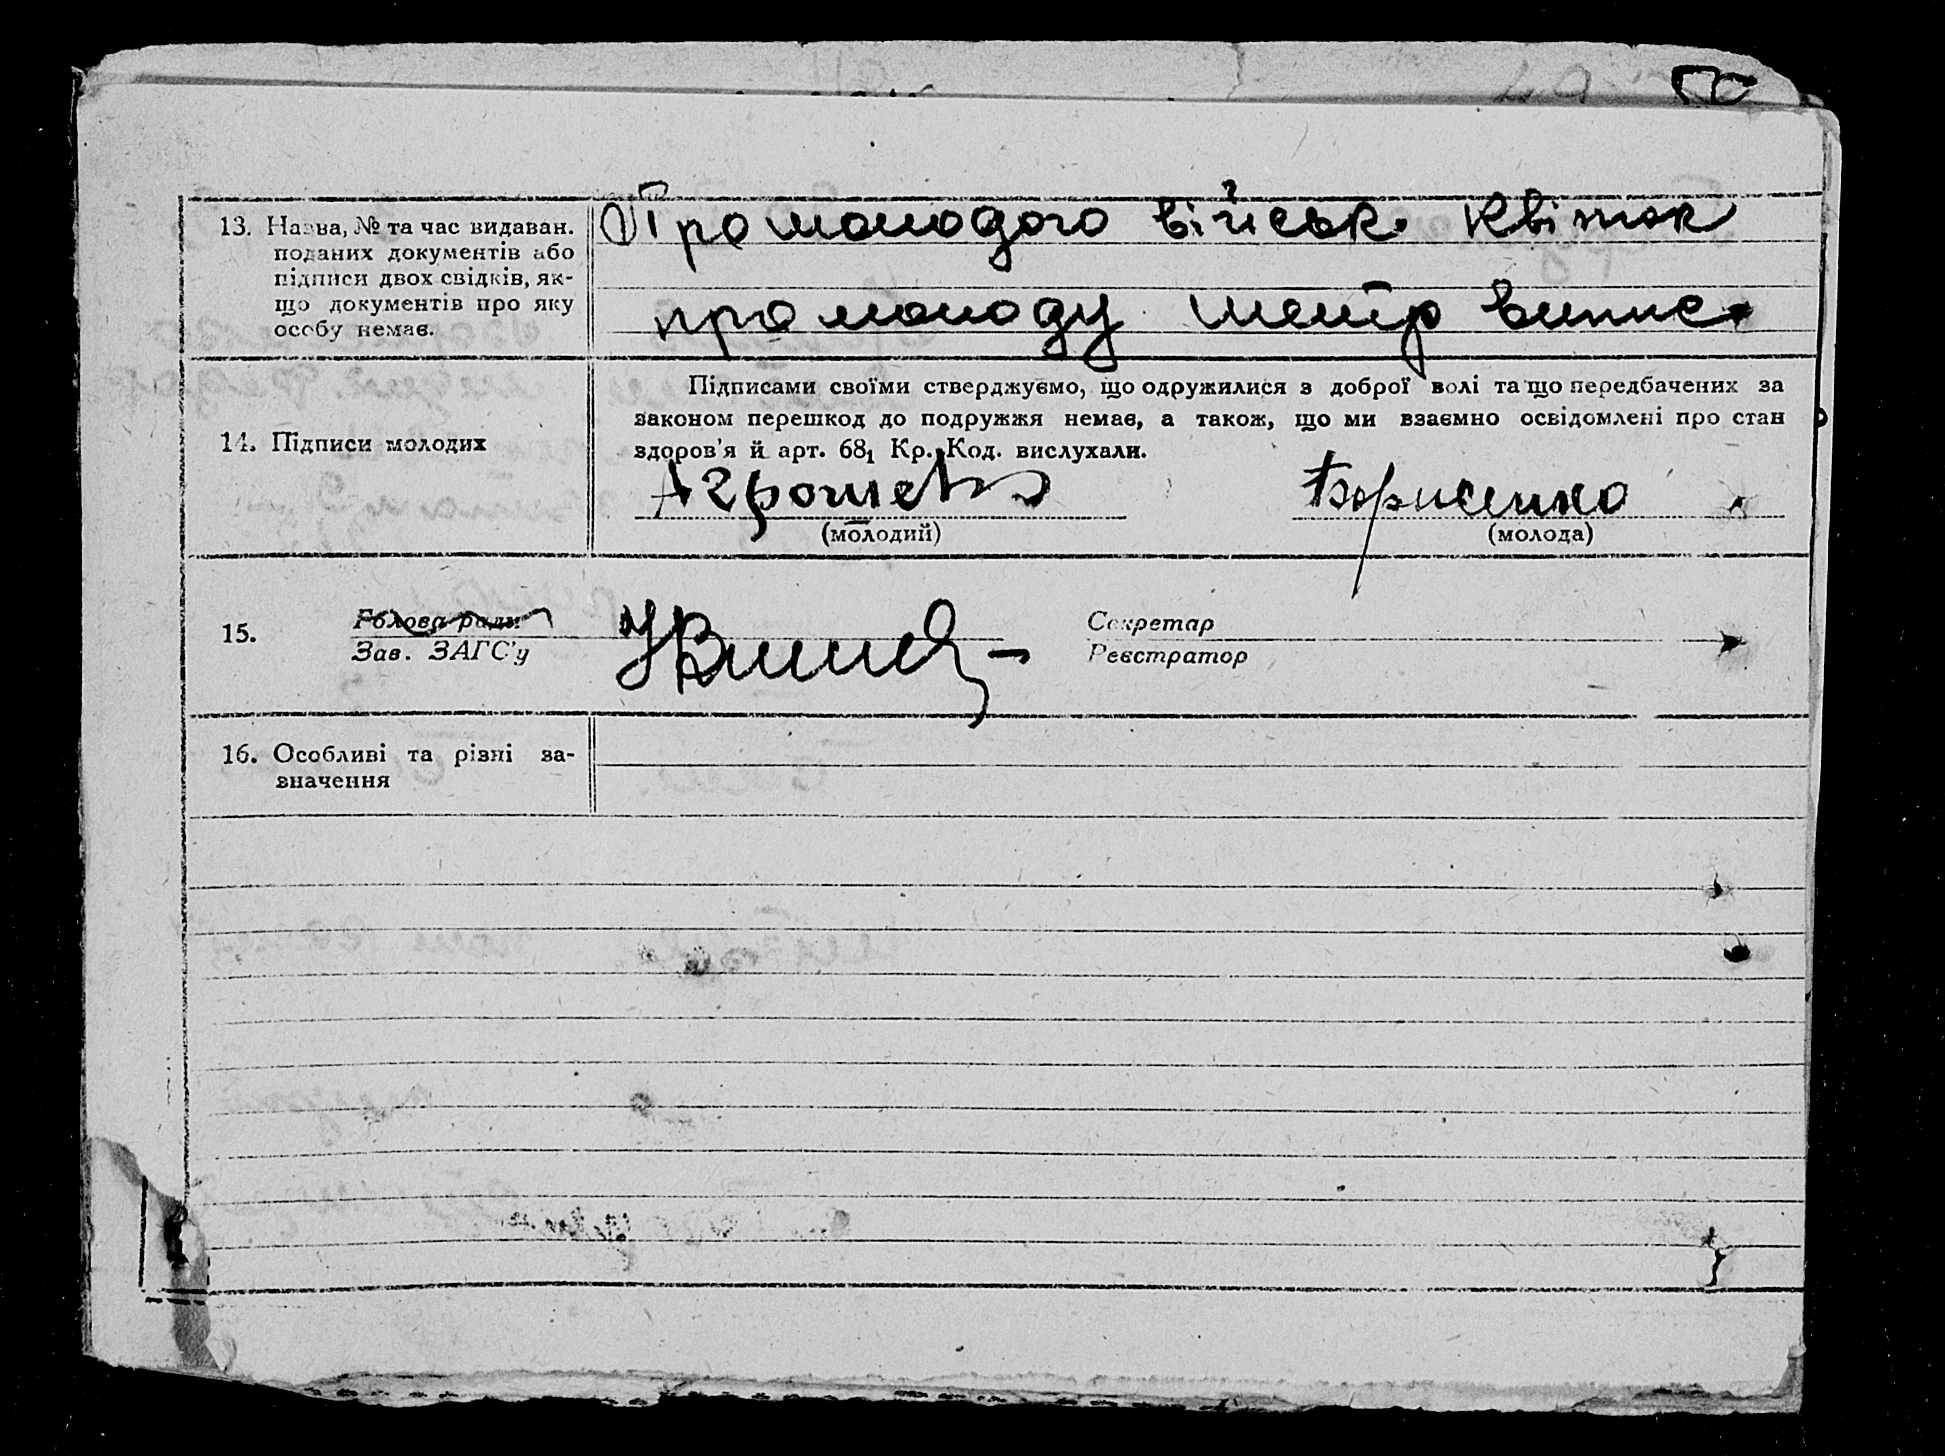 13. Назва, № та час видаван.
поданих документів або
підписи двох свідків, як-
що документів про яку
особу немає.
Про молодого військ. квіток
про молоду метр випис.
14. Підписи молодих
Підписами своїми стверджуємо, що одружилися з доброї волі та що передбачених за
законом перешкод до подружжя немає, а також, що ми взаємно освідомлені про стан
здоров'я й арт. 68₁ Кр. Код. вислухали.
Борисенко
(молодий) (молода)
15. Голова ради
Зав. ЗАГС'у
Секретар
Реєстратор
16. Особливі та різні за-
значення